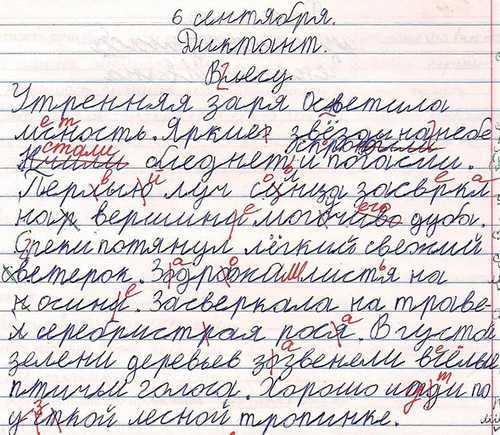 6 сентября.
Диктант.
В лесу.
Утренняя заря осветила
мсность. Яркие звёзды на небе
стали бледнет и погасли.
Первый луч сонца засвркл
на вершине его дуба.
С реки потянул лёгкий свежий
ветерок. Задрожали листья на
осине. Засверкала на траве
серебристрая рося. В густа
зелени деревьев зазвенели вёлые
птичьи голоса. Хорошо идти по
уской лесной тропинке.